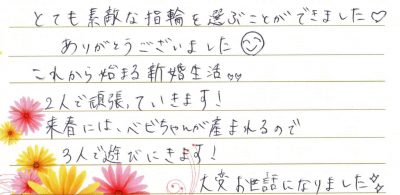 とても素敵な指輪を選ぶことができました♡
ありがとうございました☺
これから始まる新婚生活♡♡
2人で頑張っていきます!
来春には、ベビちゃんが産まれるので
3人で遊びにきます!
大変お世話になりました☆彡